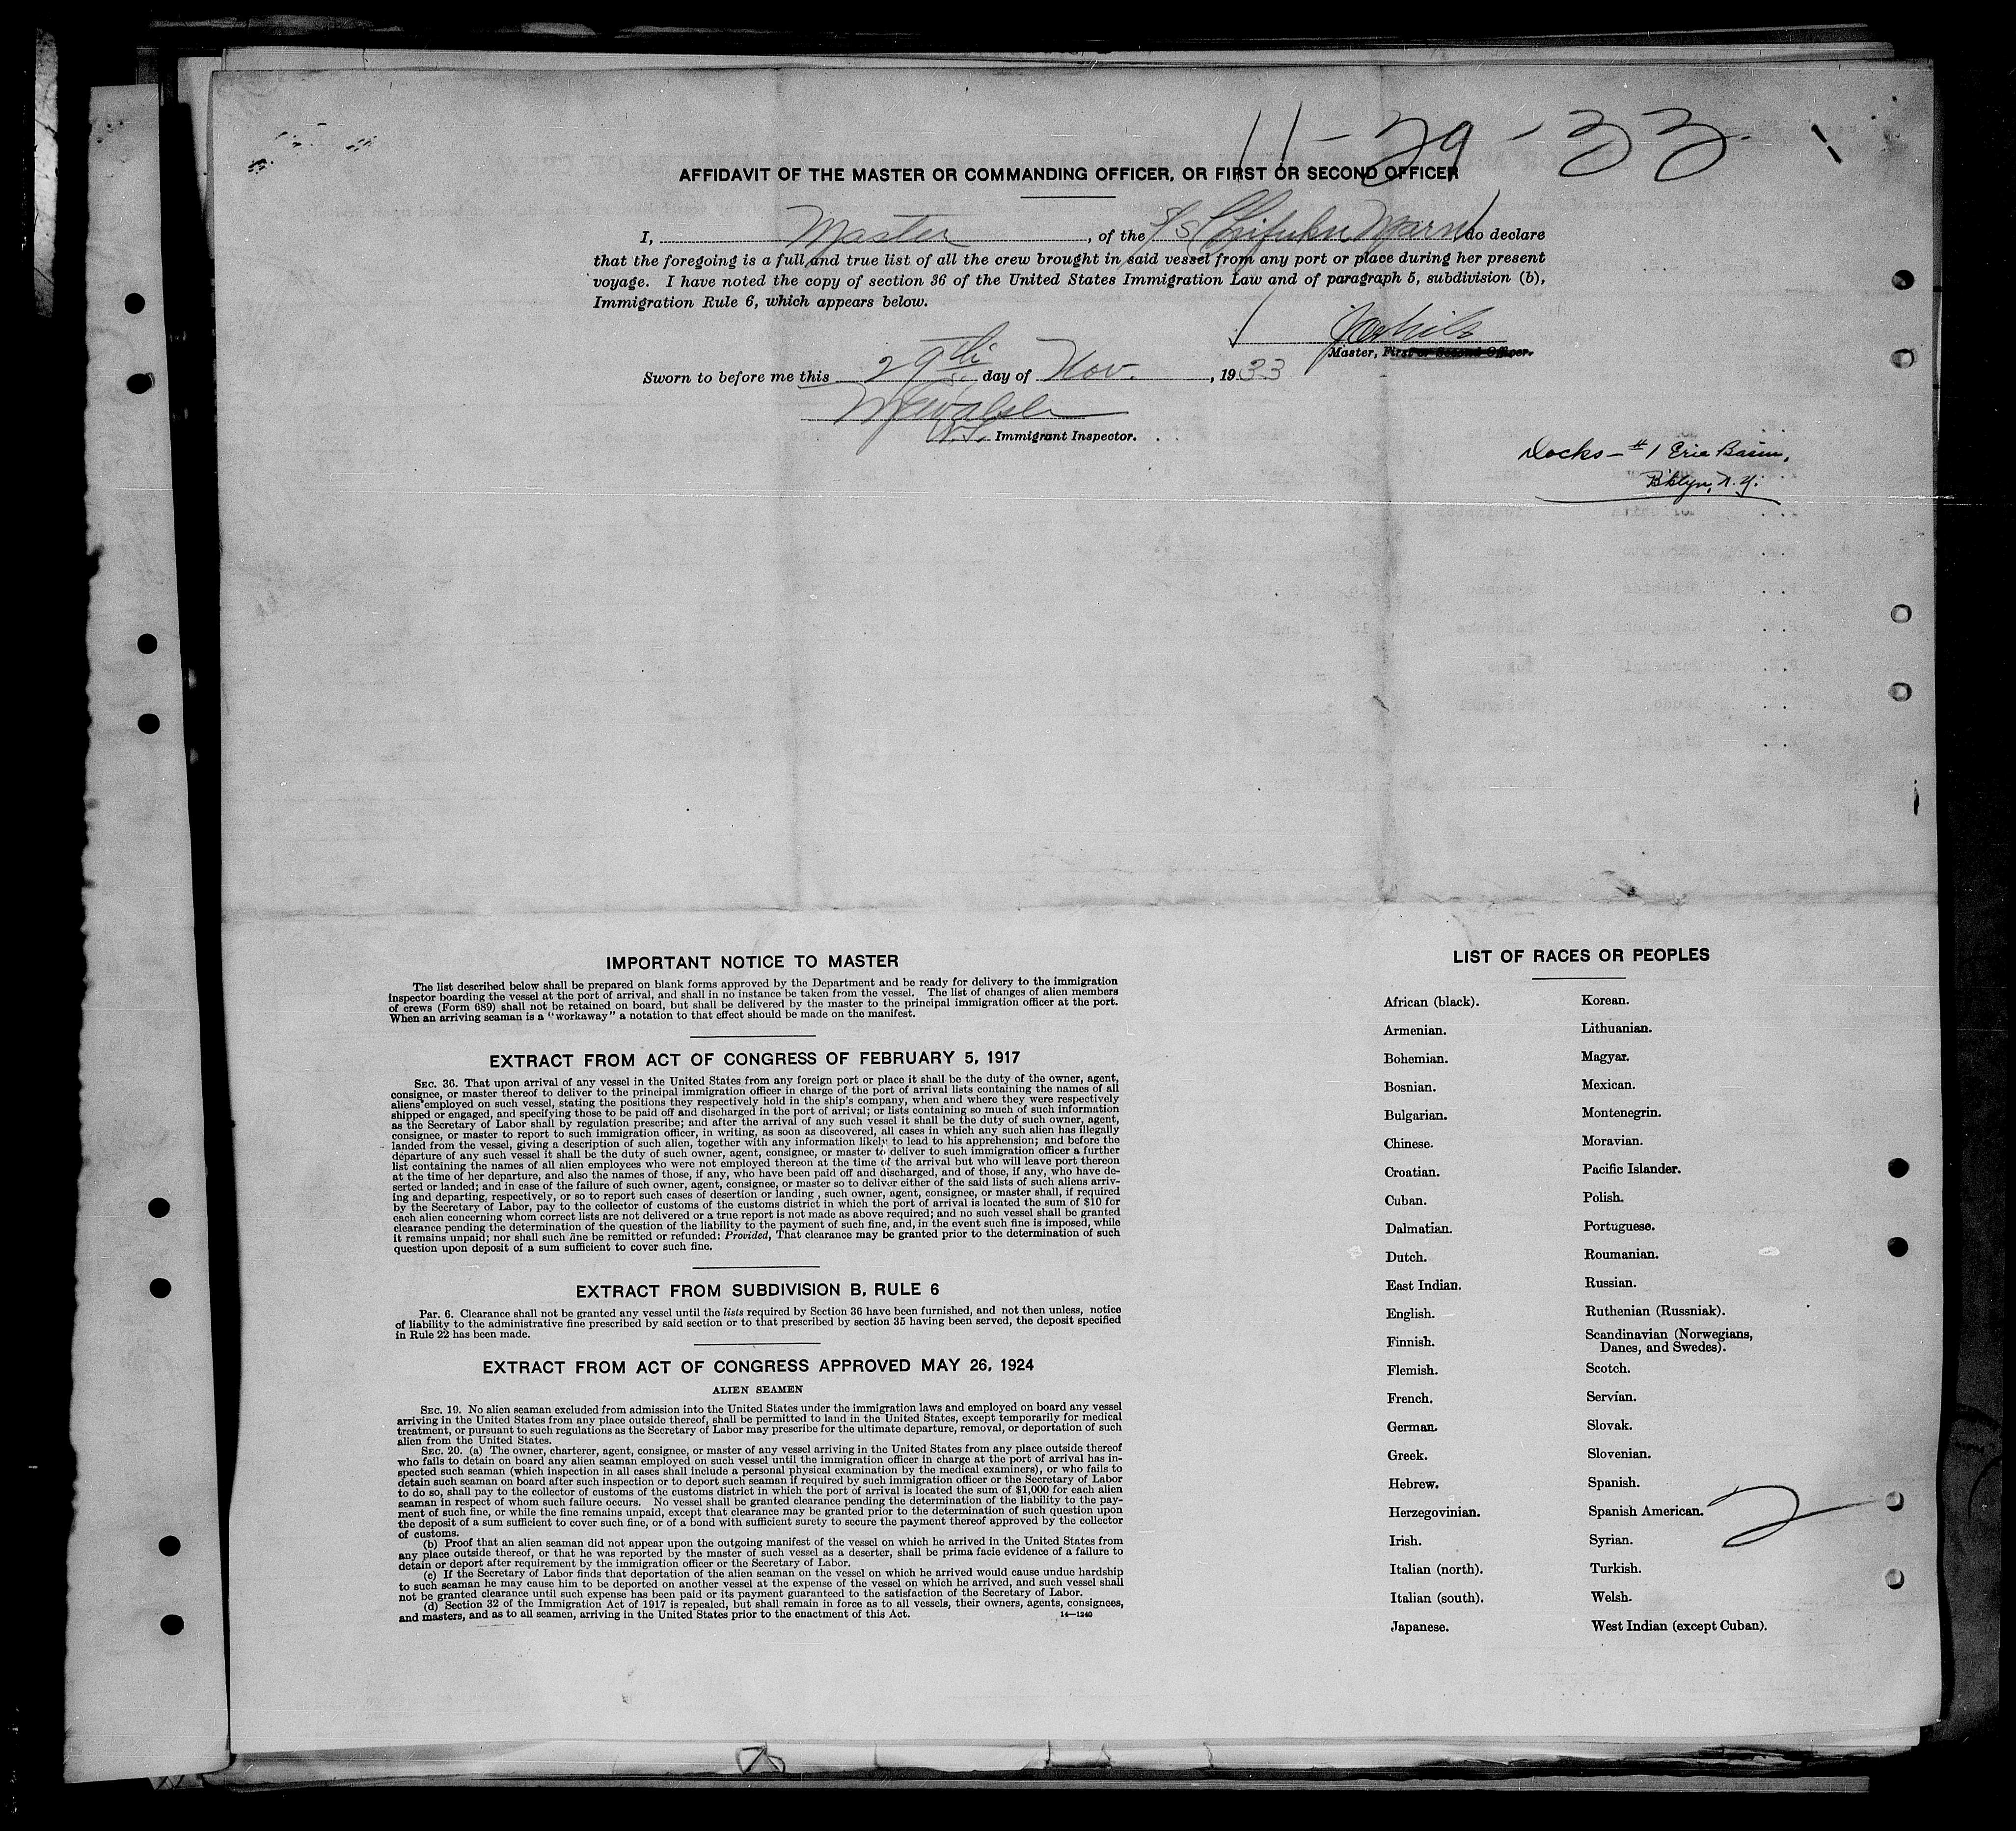 11-29-33
AFFIDAVIT OF THE MASTER OR COMMANDING OFFICER, OR FIRST OR SECOND OFFICER
I, Master, of the S/S Chifuku Maru, do declare
that the foregoing is a full and true list of all the crew brought in said vessel from any port or place during her present
voyage. I have noted the copy of section 36 of the United States Immigration Law and of paragraph 5, subdivision (b),
Immigration Rule 6, which appears below.
Master, First or Second Officer.
Sworn to before me this 29th day of Nov., 1933
Immigrant Inspector.
Docks - #1 Erie Basin,
Bklyn, N.Y.
IMPORTANT NOTICE TO MASTER
The list described below shall be prepared on blank forms approved by the Department and be ready for delivery to the immigration
inspector boarding the vessel at the port of arrival, and shall in no instance be taken from the vessel. The list of changes of alien members
of crews (Form 689) shall not be retained on board, but shall be delivered by the master to the principal immigration officer at the port.
When an arriving seaman is a "workaway" a notation to that effect should be made on the manifest.
EXTRACT FROM ACT OF CONGRESS OF FEBRUARY 5, 1917
SEC. 36. That upon arrival of any vessel in the United States from any foreign port or place it shall be the duty of the owner, agent,
consignee, or master thereof to deliver to the principal immigration officer in charge of the port of arrival lists containing the names of all
aliens employed on such vessel, stating the positions they respectively hold in the ship's company, when and where they were respectively
shipped or engaged, and specifying those to be paid off and discharged in the port of arrival; or lists containing so much of such information
as the Secretary of Labor shall by regulation prescribe; and after the arrival of any such vessel it shall be the duty of such owner, agent,
consignee, or master to report to such immigration officer, in writing, as soon as discovered, all cases in which any such alien has illegally
landed from the vessel, giving a description of such alien, together with any information likely to lead to his apprehension; and before the
departure of any such vessel it shall be the duty of such owner, agent, consignee, or master to deliver to such immigration officer a further
list containing the names of all alien employees who were not employed thereon at the time of the arrival but who will leave port thereon
at the time of her departure, and also the names of those, if any, who have been paid off and discharged, and of those, if any, who have de-
serted or landed; and in case of the failure of such owner, agent, consignee, or master so to deliver either of the said lists of such aliens arriv-
ing and departing, respectively, or so to report such cases of desertion or landing, such owner, agent, consignee, or master shall, if required
by the Secretary of Labor, pay to the collector of customs of the customs district in which the port of arrival is located the sum of $10 for
each alien concerning whom correct lists are not delivered or a true report is not made as above required; and no such vessel shall be granted
clearance pending the determination of the question of the liability to the payment of such fine, and, in the event such fine is imposed, while
it remains unpaid; nor shall such fine be remitted or refunded: Provided, That clearance may be granted prior to the determination of such
question upon deposit of a sum sufficient to cover such fine.
EXTRACT FROM SUBDIVISION B, RULE 6
Par. 6. Clearance shall not be granted any vessel until the lists required by Section 36 have been furnished, and not then unless, notice
of liability to the administrative fine prescribed by said section or to that prescribed by section 35 having been served, the deposit specified
in Rule 22 has been made.
EXTRACT FROM ACT OF CONGRESS APPROVED MAY 26, 1924
ALIEN SEAMEN
SEC. 19. No alien seaman excluded from admission into the United States under the immigration laws and employed on board any vessel
arriving in the United States from any place outside thereof, shall be permitted to land in the United States, except temporarily for medical
treatment, or pursuant to such regulations as the Secretary of Labor may prescribe for the ultimate departure, removal, or deportation of such
alien from the United States.
SEC. 20. (a) The owner, charterer, agent, consignee, or master of any vessel arriving in the United States from any place outside thereof
who fails to detain on board any alien seaman employed on such vessel until the immigration officer in charge at the port of arrival has in-
spected such seaman (which inspection in all cases shall include a personal physical examination by the medical examiners), or who fails to
detain such seaman on board after such inspection or to deport such seaman if required by such immigration officer or the Secretary of Labor
to do so, shall pay to the collector of customs of the customs district in which the port of arrival is located the sum of $1,000 for each alien
seaman in respect of whom such failure occurs. No vessel shall be granted clearance pending the determination of the liability to the pay-
ment of such fine, or while the fine remains unpaid, except that clearance may be granted prior to the determination of such question upon
the deposit of a sum sufficient to cover such fine, or of a bond with sufficient surety to secure the payment thereof approved by the collector
of customs.
(b) Proof that an alien seaman did not appear upon the outgoing manifest of the vessel on which he arrived in the United States from
any place outside thereof, or that he was reported by the master of such vessel as a deserter, shall be prima facie evidence of a failure to
detain or deport after requirement by the immigration officer or the Secretary of Labor.
(c) If the Secretary of Labor finds that deportation of the alien seaman on the vessel on which he arrived would cause undue hardship
to such seaman he may cause him to be deported on another vessel at the expense of the vessel on which he arrived, and such vessel shall
not be granted clearance until such expense has been paid or its payment guaranteed to the satisfaction of the Secretary of Labor.
(d) Section 32 of the Immigration Act of 1917 is repealed, but shall remain in force as to all vessels, their owners, agents, consignees,
and masters, and as to all seamen, arriving in the United States prior to the enactment of this Act.
14—1240
LIST OF RACES OR PEOPLES
African (black).
Armenian.
Bohemian.
Bosnian.
Bulgarian.
Chinese.
Croatian.
Cuban.
Dalmatian.
Dutch.
East Indian.
English.
Finnish.
Flemish.
French.
German.
Greek.
Hebrew.
Herzegovinian.
Irish.
Italian (north).
Italian (south).
Japanese.
Korean.
Lithuanian.
Magyar.
Mexican.
Montenegrin.
Moravian.
Pacific Islander.
Polish.
Portuguese.
Roumanian.
Russian.
Ruthenian (Russniak).
Scandinavian (Norwegians,
Danes, and Swedes).
Scotch.
Servian.
Slovak.
Slovenian.
Spanish.
Spanish American.
Syrian.
Turkish.
Welsh.
West Indian (except Cuban).
2